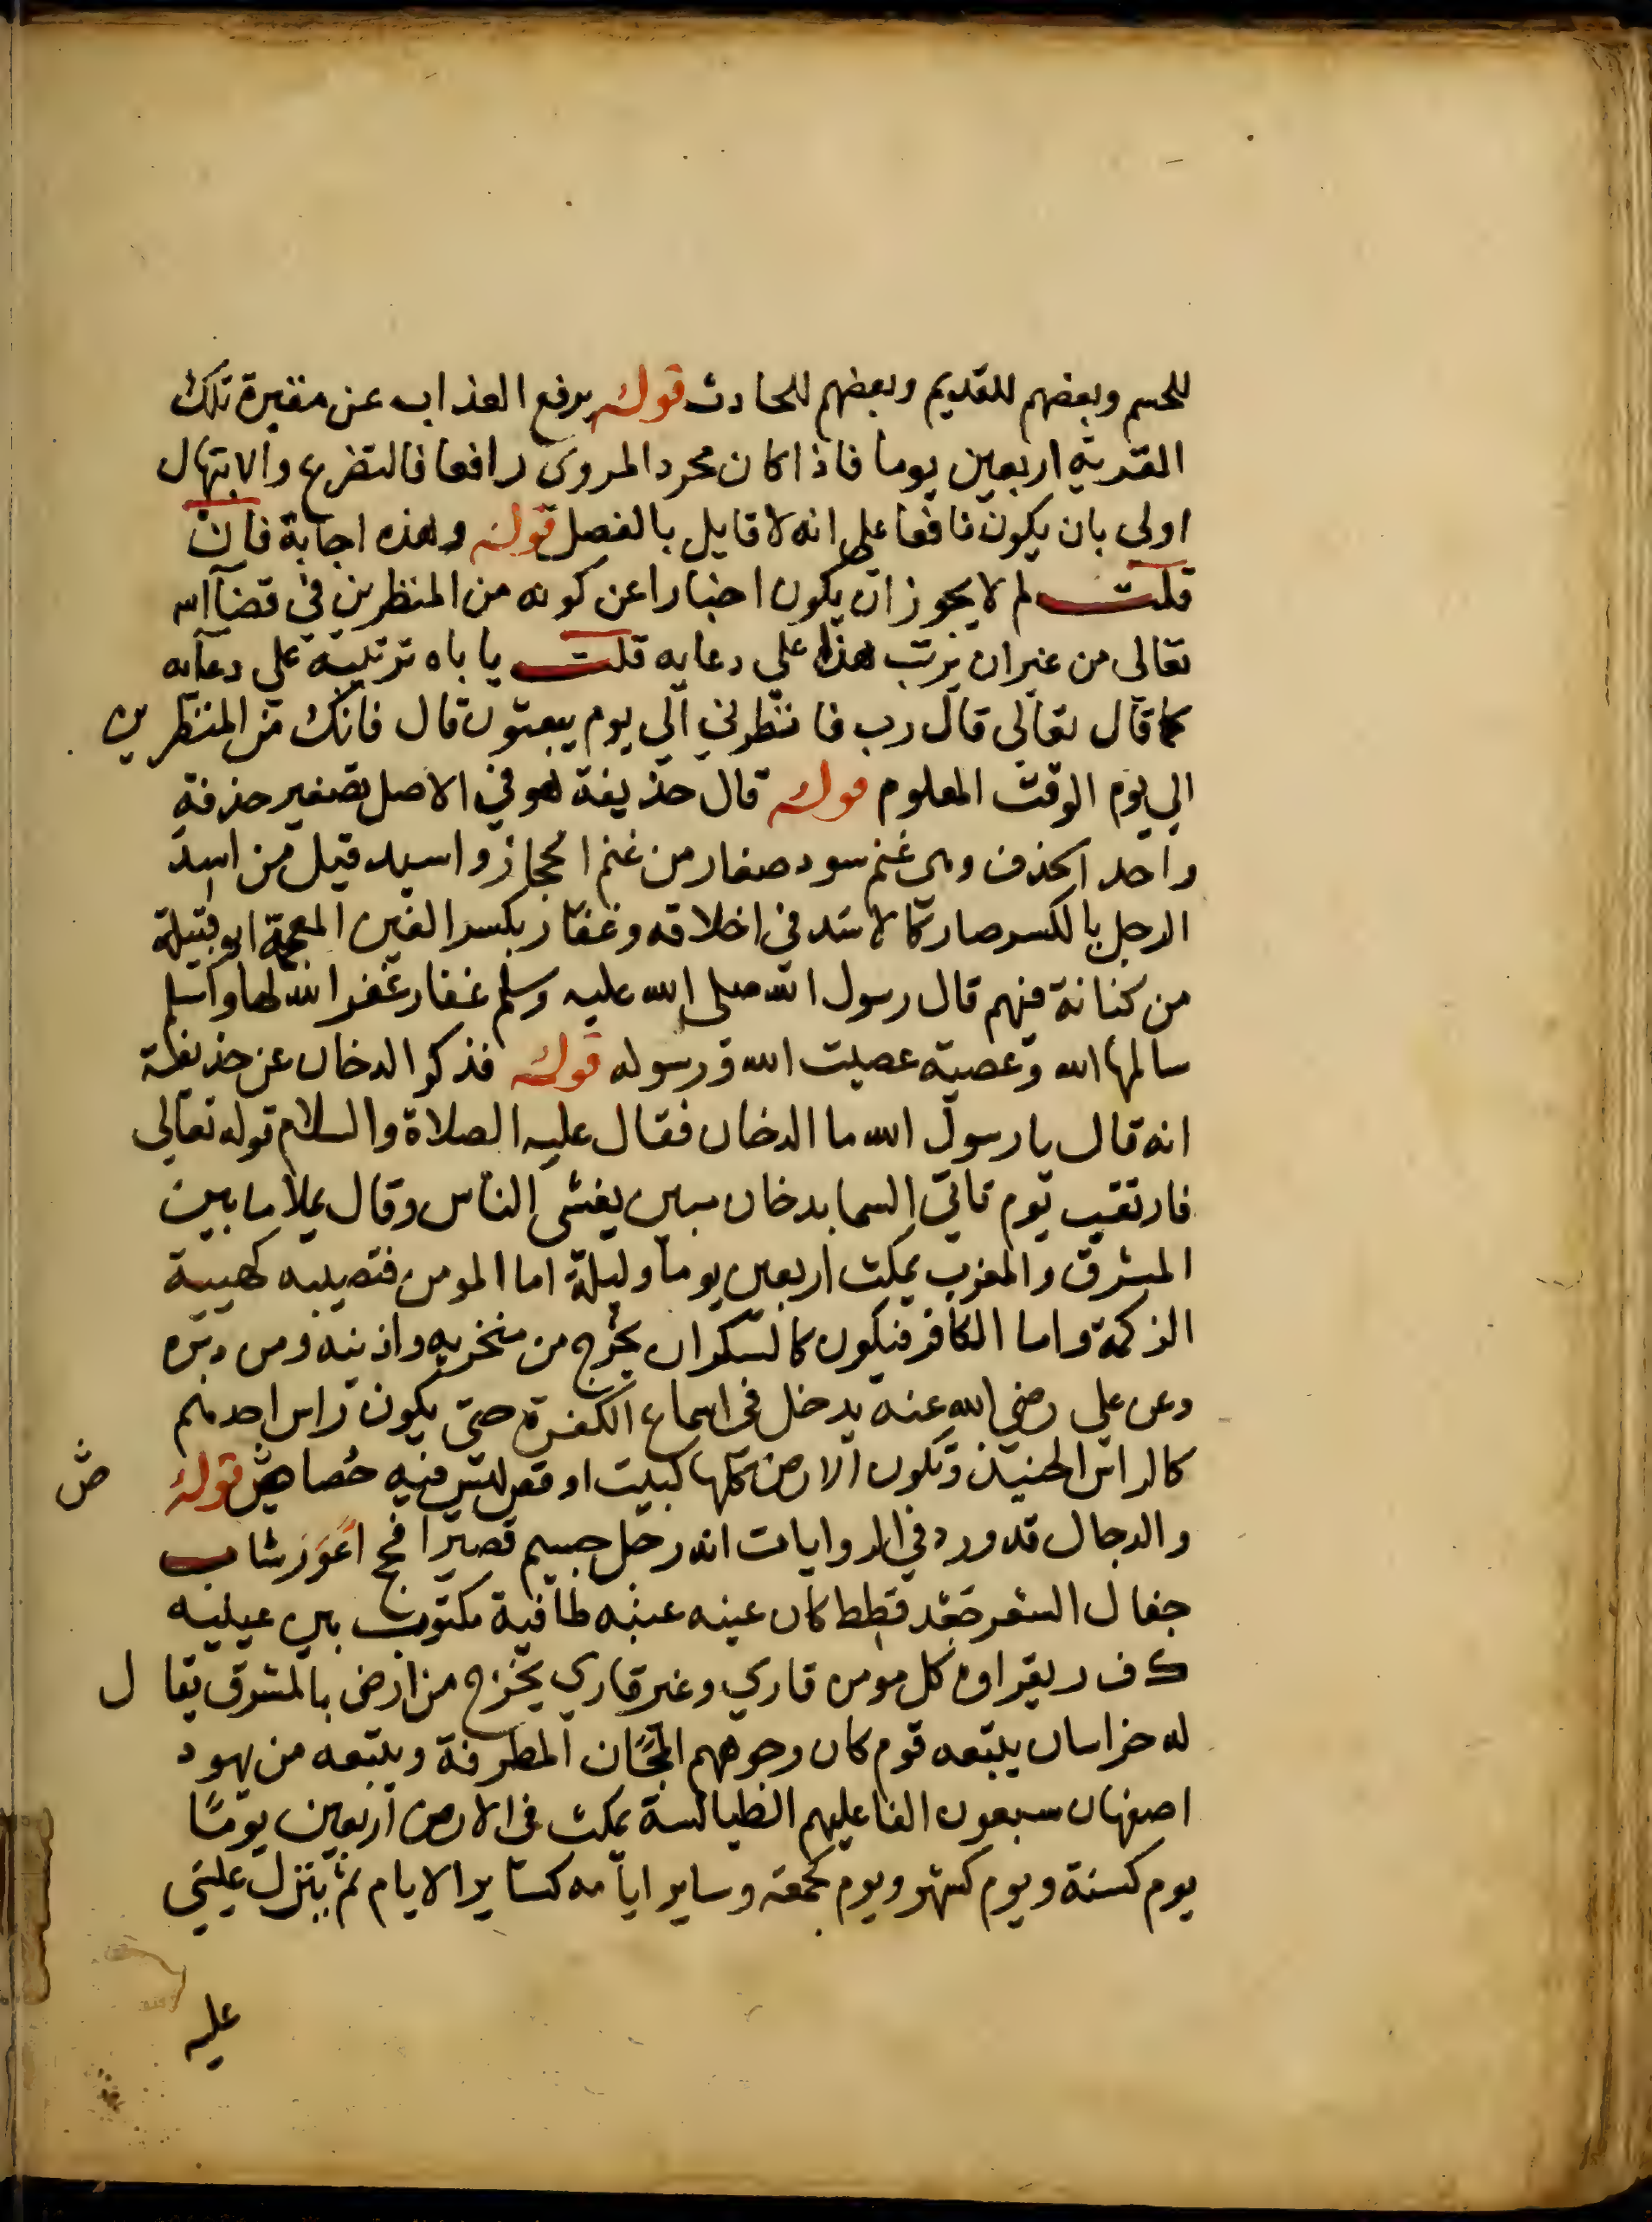 للحسم وبعضهم للقديم وبعضهم للحادث قوله يرفع العذاب عن مقبرة تلك
القرية اربعين يوما فاذا كان مجرد المروى رافعا فالتضرع والابتهال
اولى بان يكون نافعا على انه لا قايل بالفصل قوله وهذه اجابة فان
قلت لم لا يجوز ان يكون اخبارا عن كونه من المنظرين في قضآ الله
تعالى من غير ان يرتب هذا على دعايه قلت ياباه ترتيبه على دعآيه
كما قال تعالى قال رب فانظرني الي يوم يبعثون قال فانك من المنظرين
الي يوم الوقت المعلوم قوله قال حذيفة هو في الاصل تصغير حذفة
واحد الحذف وهى غنم سود صغار من غنم الحجاز واسيد قيل من اسد
الرجل بالكسر صار كالاسد في اخلاقه وغفار بكسر الغين المعجمة ابو قبيلة
من كنانة فهم قال رسول الله صلى الله عليه وسلم غفار غفر الله لها واسلم
سالمها الله وعصية عصيت الله ورسوله قوله فذكر الدخان عن حذيفة
انه قال يا رسول الله ما الدخان فقال عليه الصلاة والسلام قوله تعالى
فارتقب يوم تاتي السما بدخان مبين يغشى الناس وقال يملا ما بين
المشرق والمغرب يمكث اربعين يوما وليلة اما المومن فتصيبه كهيية
الزكمة واما الكافر فيكون كالسكران يخرج من منخريه واذنيه ومن دبره
وعن على رضي الله عنه يدخل فى اسماع الكفرة حتى يكون راس احدهم
كالراس الحنيذ وتكون الارض كلها كبيت اوقد ليس فيه خصاص قوله
ص
والدجال قد ورد في الروايات انه رجل جسيم قصير افحج اعور شاب
جفال الشعر جعد قطط كان عينه عنبه طافية مكتوب بين عينيه
ك ف ر يقراوه كل مومن قاري وغير قاري يخرج من ارض بالمشرق يقال
له خراسان يتبعه قوم كان وجوههم المجان المطرقة ويتبعه من يهود
اصفهان سبعون الفا عليهم الطيالسة يمكث فى الارض اربعين يومًا
يوم كسنة ويوم كشهر ويوم كجمعه وساير ايامه كساير الايام ثم ينزل عيسى
عليه